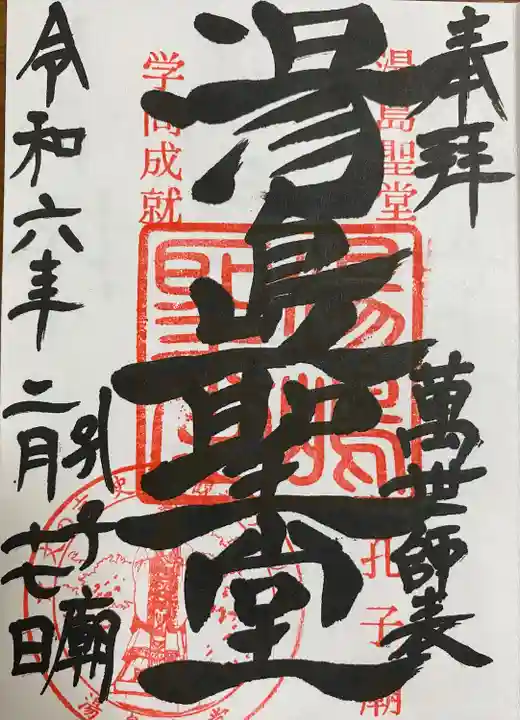 奉拝
萬世師表
湯島聖堂
孔子廟
湯島聖堂
学問成就
孔子廟
令和六年二月廿七日